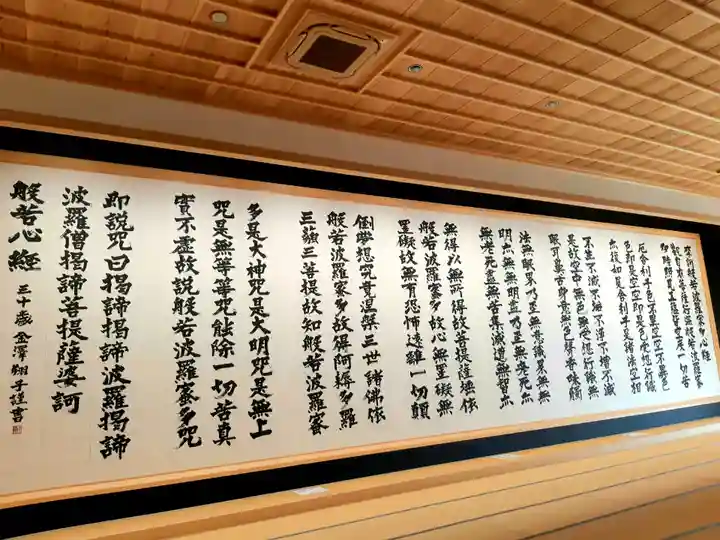 摩訶般若波羅蜜多心經
観自在菩薩行深般若波羅蜜
多時照見五蘊皆空度一切苦
厄舎利子色不異空空不異色
色即是空空即是色受想行識
亦復如是舎利子是諸法空相
不生不滅不垢不浄不増不減
是故空中無色無受想行識無
眼耳鼻舌身意無色声香味觸
法無眼界乃至無意識界無無
明亦無無明盡乃至無老死亦
無老死盡無苦集滅道無智亦
無得以無所得故菩提薩埵依
般若波羅蜜多故心無罣礙無
罣礙故無有恐怖遠離一切顛
倒夢想究竟涅槃三世諸佛依
般若波羅蜜多故得阿耨多羅
三藐三菩提故知般若波羅蜜
多是大神咒是大明咒是無上
咒是無等等咒能除一切苦真
實不虚故説般若波羅蜜多咒
即説咒曰揭諦揭諦波羅揭諦
波羅僧揭諦菩提薩婆訶
般若心經
三十歳 金澤翔子謹書